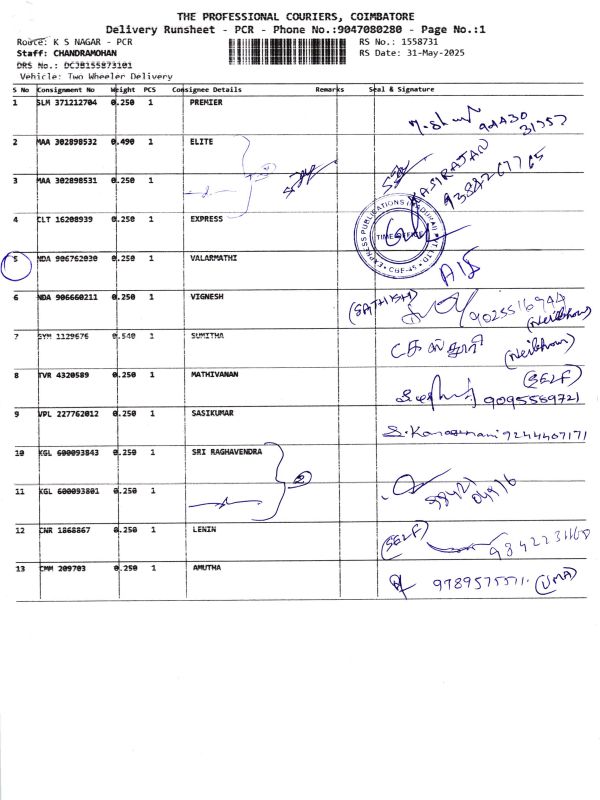 THE PROFESSIONAL COURIERS, COIMBATORE
Delivery Runsheet - PCR - Phone No.:9047080280 - Page No.:1
Route: K S NAGAR - PCR RS No.: 1558731
Staff: CHANDRAMOHAN RS Date: 31-May-2025
DRS No.: DCJB155873101
Vehicle: Two Wheeler Delivery
S No Consignment No Weight PCS Consignee Details Remarks Seal & Signature
1 SLM 371212704 0.250 1 PREMIER
2 MAA 302898532 0.490 1 ELITE
KASIRAJAN
3 MAA 302898531 0.250 1
9384267765
4 CLT 16208939 0.250 1 EXPRESS
TIME OFFICE
5 NDA 906762030 0.250 1 VALARMATHI
6 NDA 906660211 0.250 1 VIGNESH (SATHISH) 9025516944
(Neibhour)
7 GYM 1129676 0.540 1 SUMITHA (Neibhour)
8 TVR 4320589 0.250 1 MATHIVANAN (SELF)
9095569721
9 VPL 227762012 0.250 1 SASIKUMAR 9244407171
10 KGL 600093843 0.250 1 SRI RAGHAVENDRA
11 KGL 600093801 0.250 1 98421 04916
12 CNR 1868867 0.250 1 LENIN (SELF)
13 CMM 209703 0.250 1 AMUTHA 9789575511. (UMA)